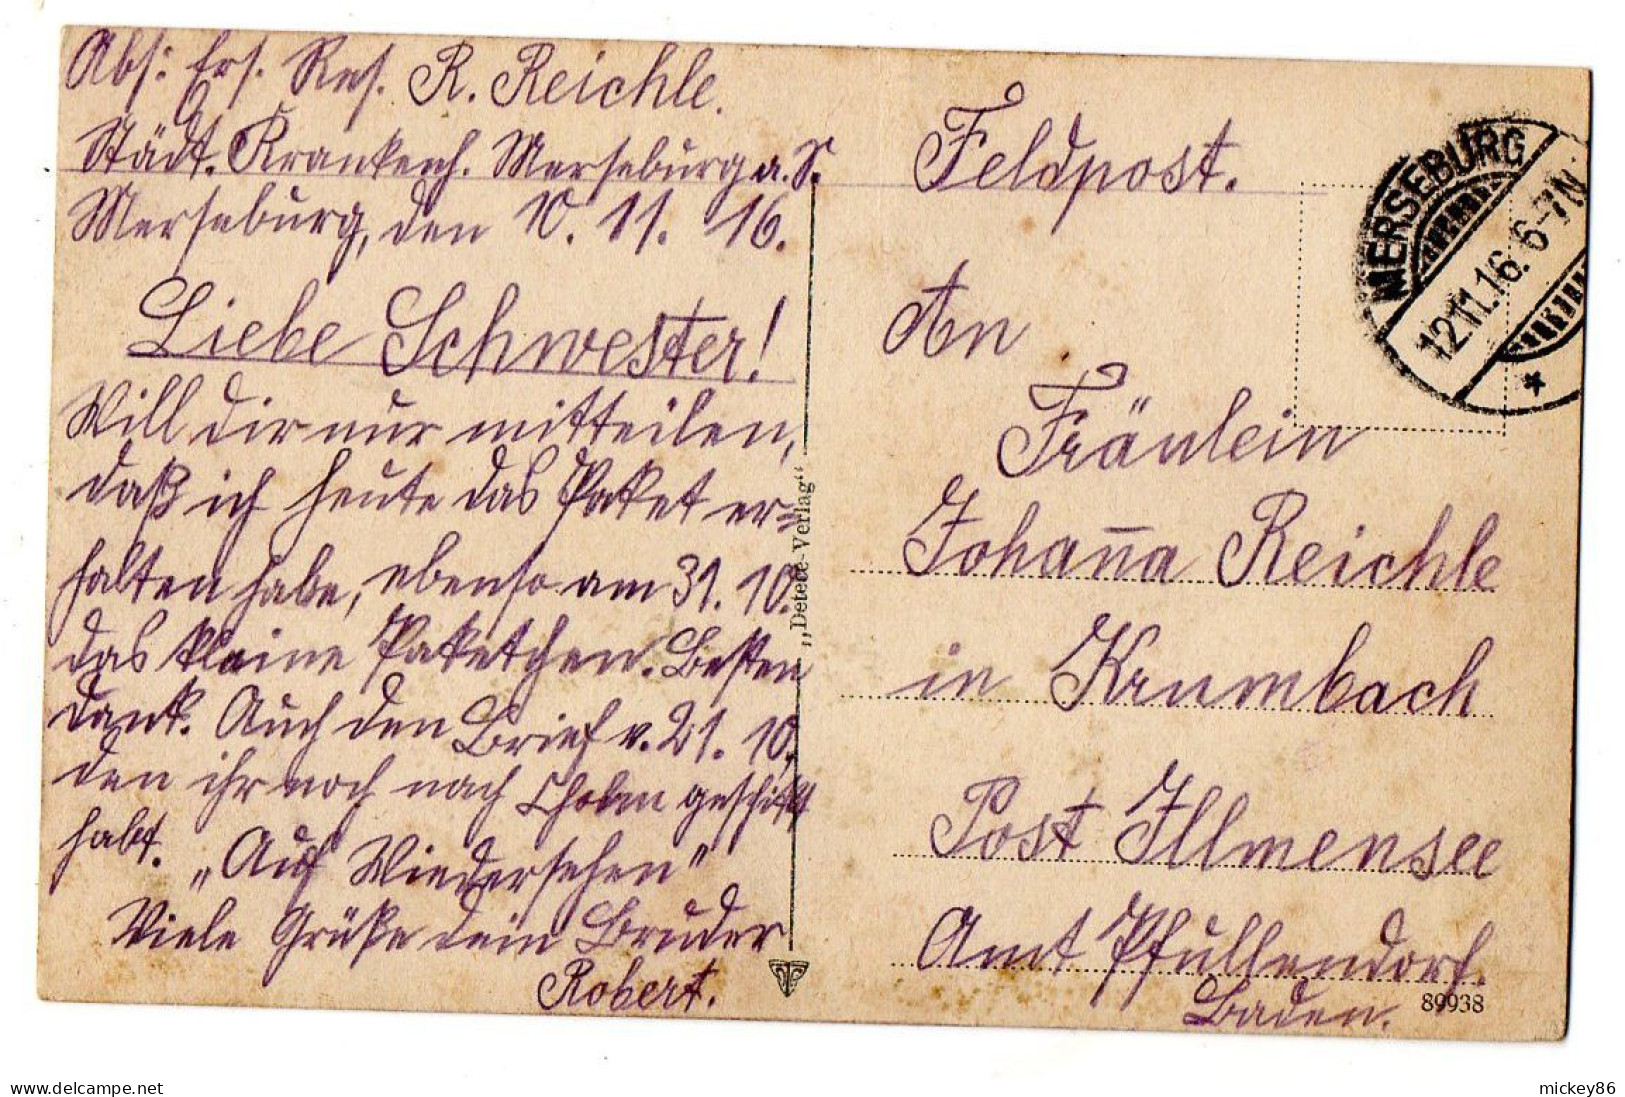 Abs: Ers. Res. R. Reichle.
Städt. Krankenh. Merseburg a. S.
Merseburg, den 10. 11. 16.
Liebe Schwester!
Will dir nur mitteilen,
daß ich heute das Paket er=
halten habe, ebenso am 31. 10.
das kleine Paketchen. Besten
Dank. Auch den Brief v. 21. 10,
den ihr noch nach Cholm geschickt
habt. „Auf Wiedersehen"
Viele Grüße dein Bruder
Robert.
„Detebe-Verlag“
Feldpost.
MERSEBURG
12.11.16. 6-7N
*
An
Fräulein
Johanna Reichle
in Krumbach
Post Illmensee
Amt Pfullendorf.
Baden.
89938
mickey86